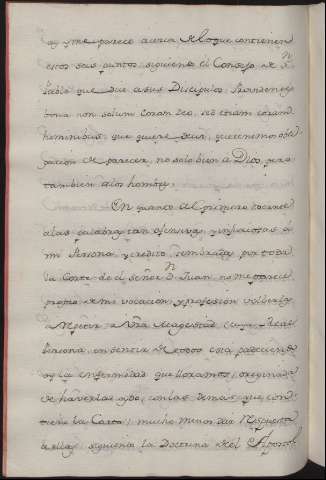 me parece acerca de lo que contienen
estos seis puntos, siguiendo el Consejo de Sn
Pablo que dice a sus Discipulos: Providentes
bona non solum coram Deo, sed etiam coram
hominibus, que quiere decir, que tenemos obli
gacion de parecer, no solo bien a Dios, pero
tambien a los hombres.
En quanto al primero tocante
a las palabras tan ofensivas, y injustas á
mi Persona, y credito sembradas por toda
la Corte de el señor Dn Juan, no me parece
propio de mi vocacion, y profesion volverlas
a repetir a Vra Magestad, cuya Real
Persona, en
la enfermedad que lloramos, originada
de haverlas oydo, con las demas que con
tiene la Carta; mucho menos dar respuesta
a ellas, siguiendo la Doctrina del Apostol